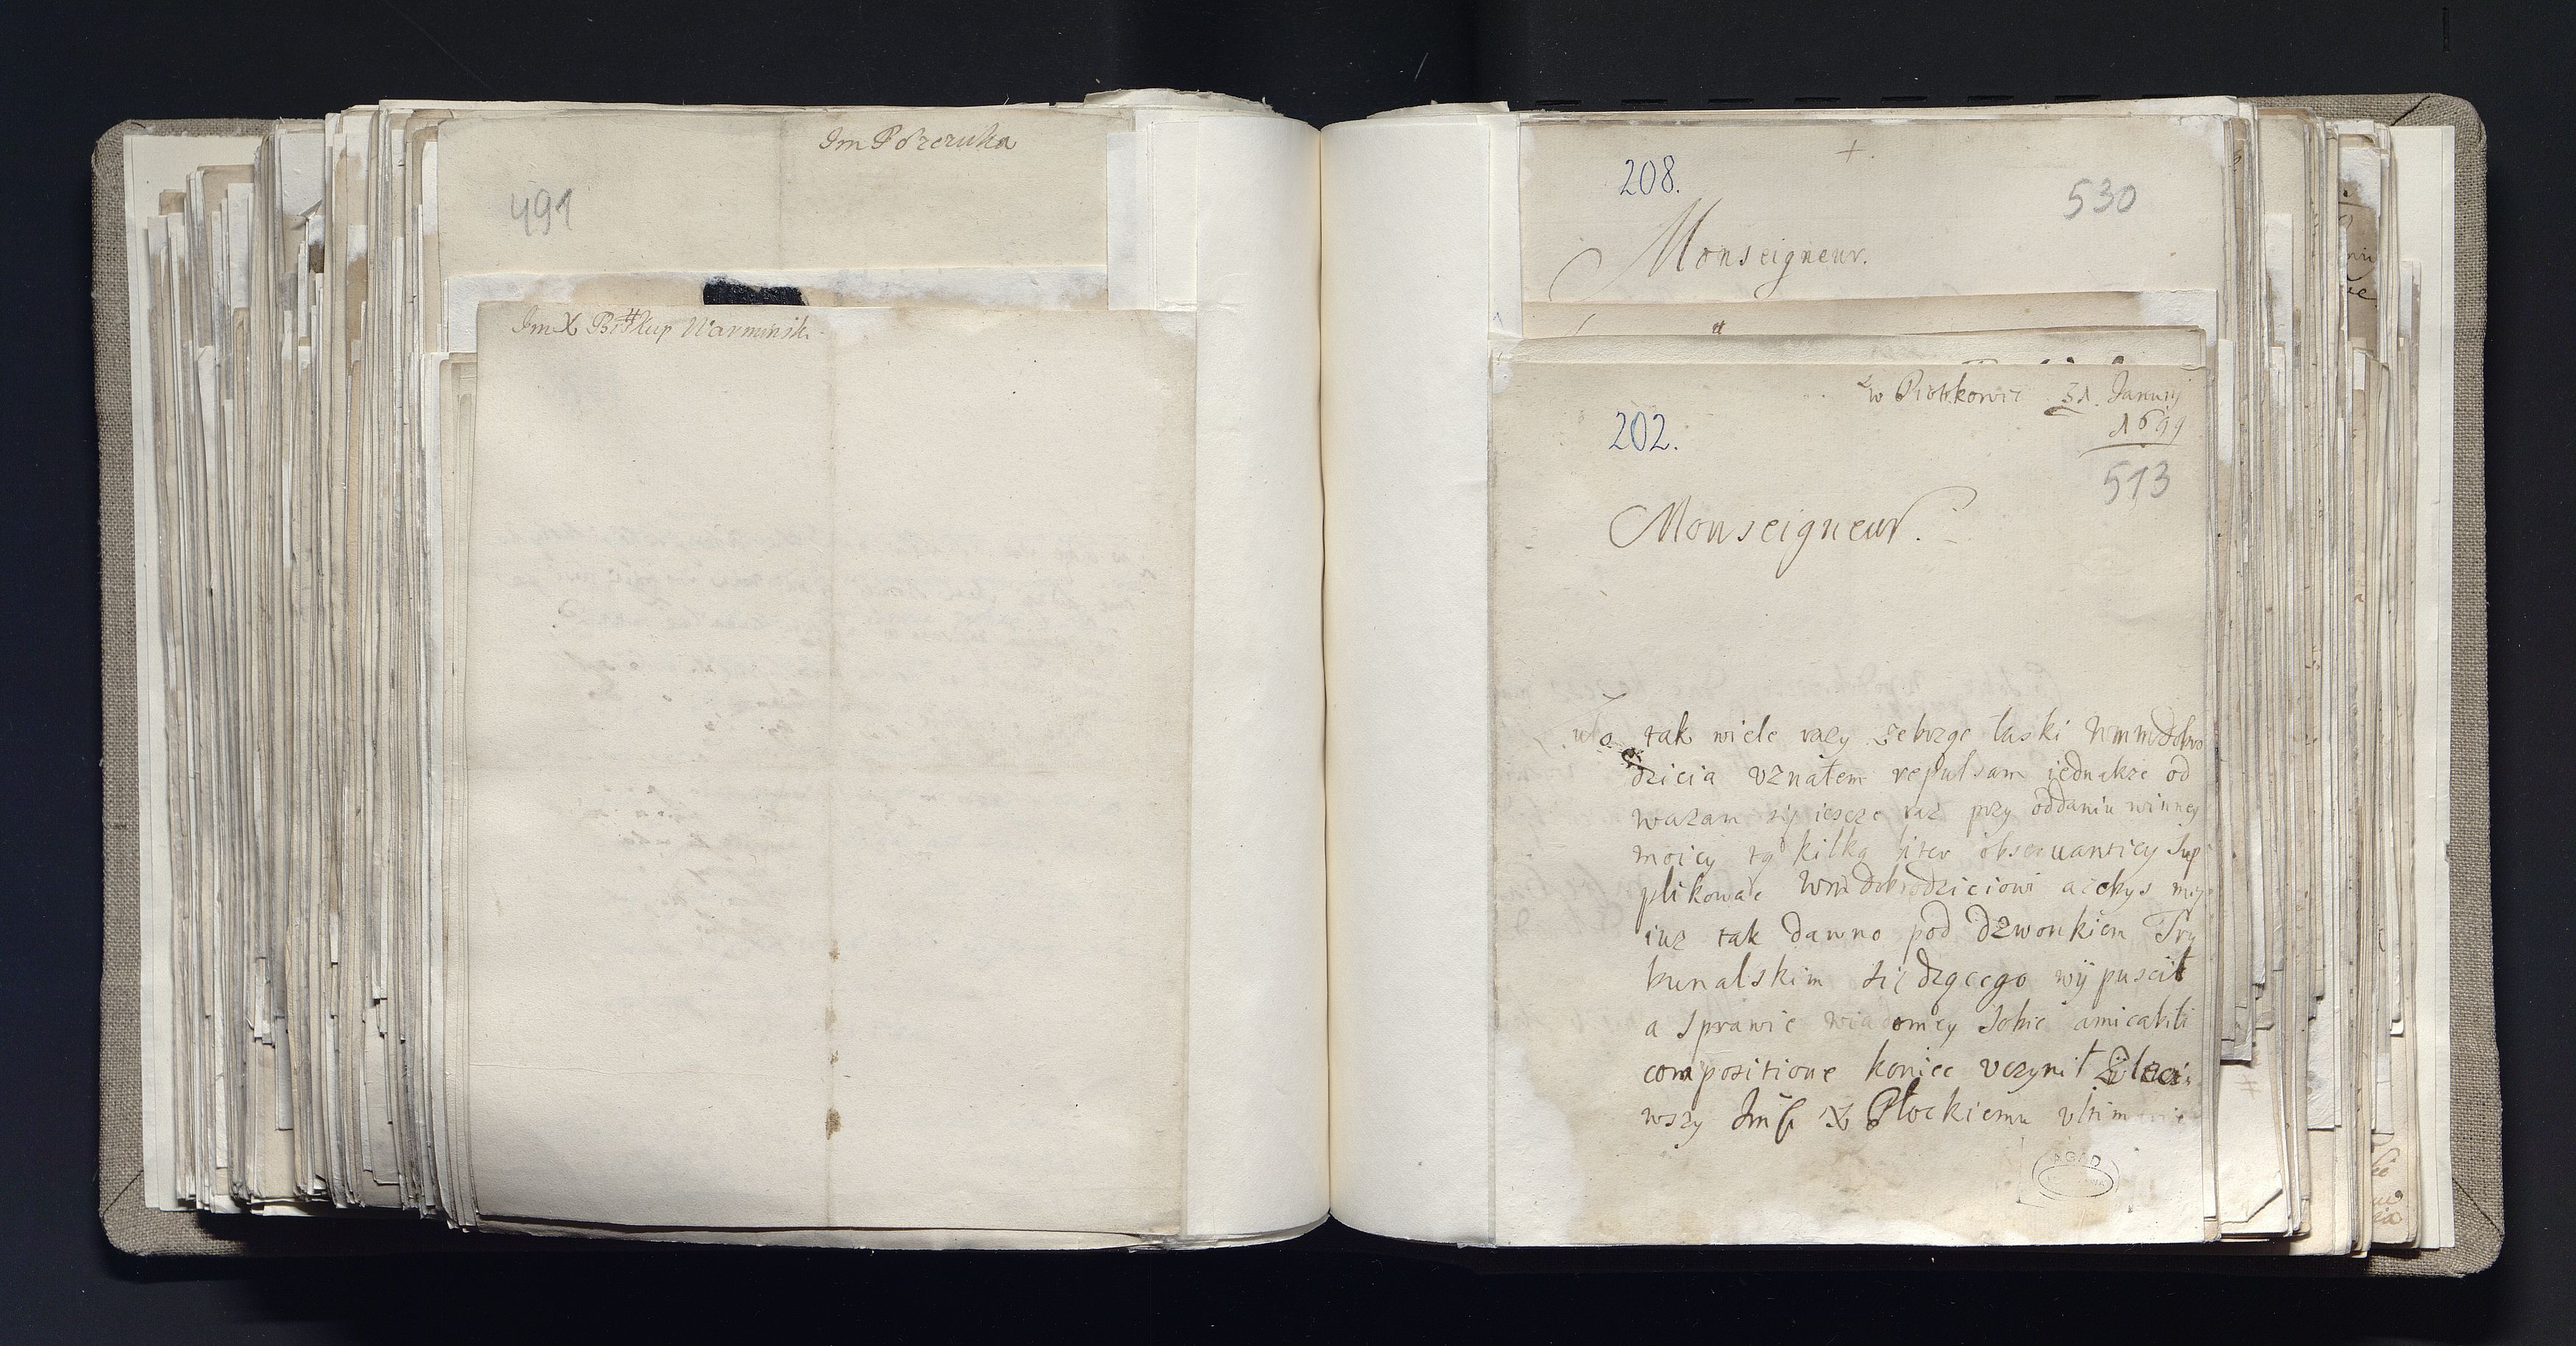 Im Pozeruka
491
ImX Biskup Warminsk.
+.
208.
530
Monseigneur.
w Piotrkowie 31. Januarij
1699
202.
513
Monseigneur.
tak wiele razy zebrzge łaski WmmDobro
dzieia vznałem repulsam iednakze od
wazam się iescze raz przy oddaniu winney
moiey tą kilką liter obseruantiey Sup
plikowac Wm Dobrodzieiowi aczbys my
iuz tak dawno pod dzwonkiem Try
bunalskim siędzgcego wypuscił
a sprawie wiadomey sobie amicabili
compositione koniec vczynił
wszy Jmści X Płockiemu vltim
AGAD